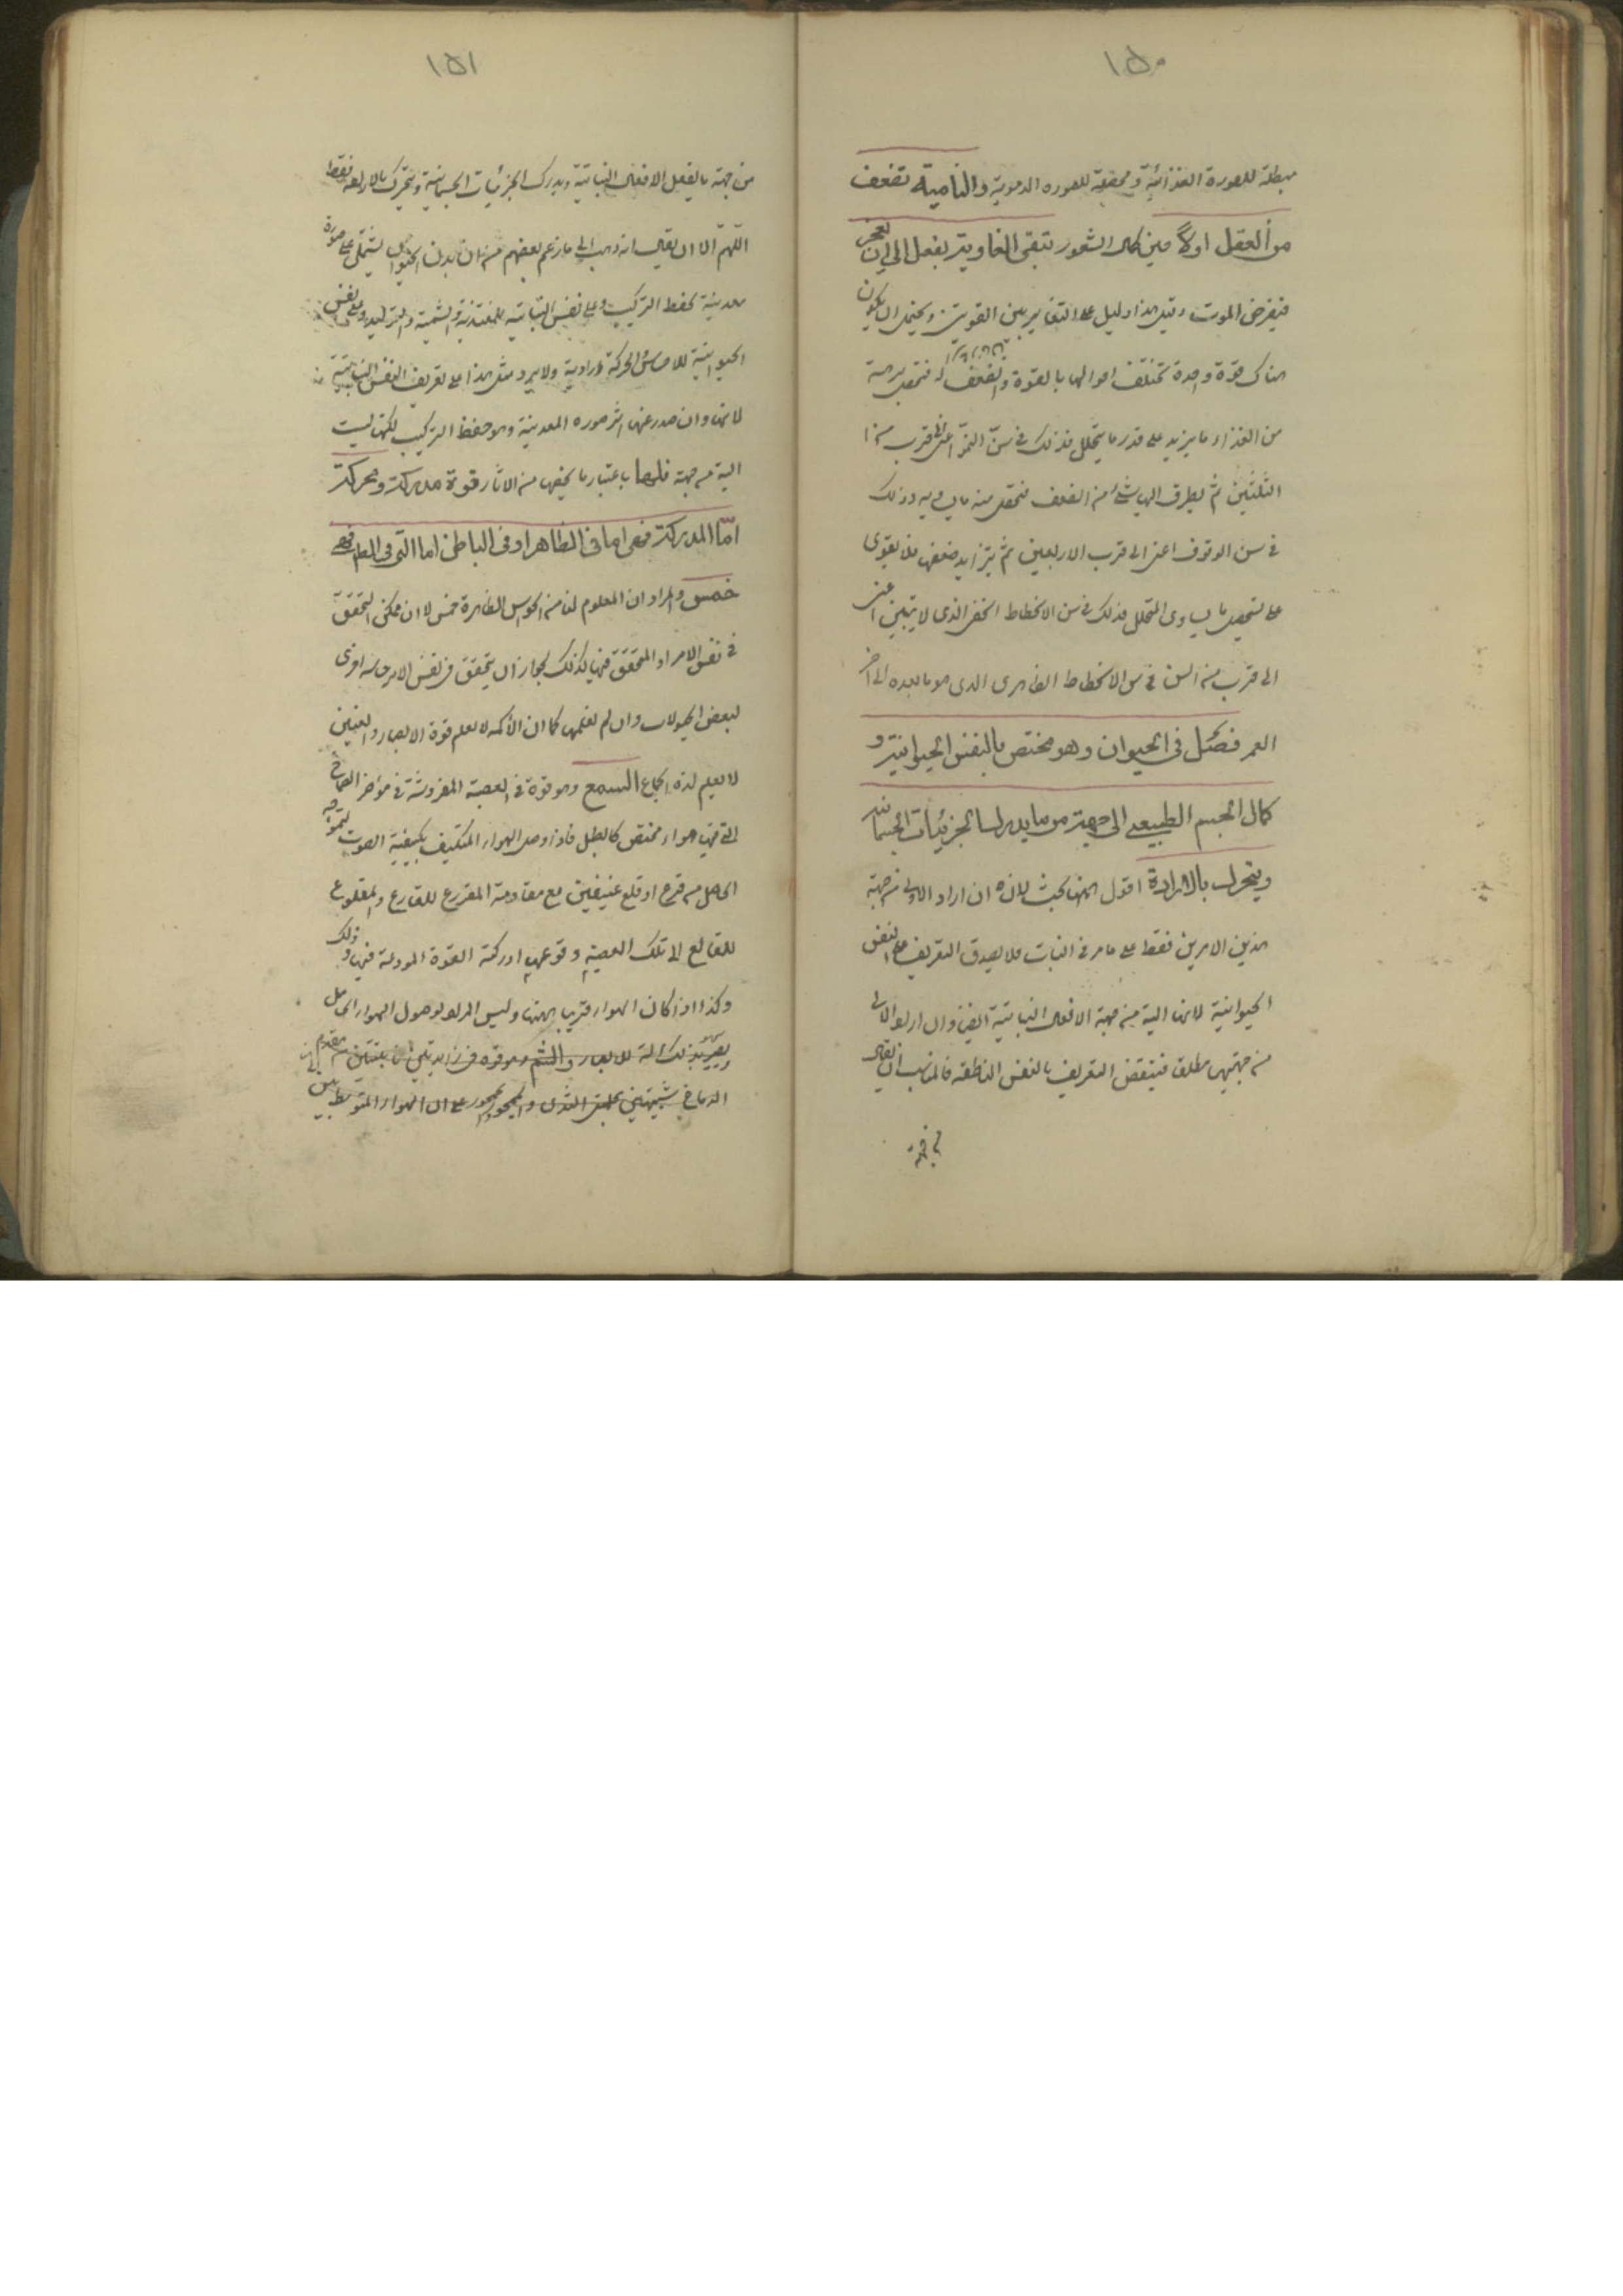 ١٥٠
مبطلة للصورة الغذائية ومحصلة للصورة الدموية والنامية تضعف
من العقل اولاً حين كمال الشعور تبقى الغاذية بفعل الى ان تعجز
فيفرض الموت وقيل هذا دليل على التغاير بين القوتين ويحتمل ان يكون
هناك قوة واحدة تختلف احوالها بالقوة والضعف فتحصل
من الغذاء ما يزيد على قدر ما يتحلل فذلك في سن النمو اعنى الى قرب من
الثلثين ثم يطرق اليها شئ من الضعف فتحصل منه ما يساويه وذلك
في سن الوقوف اعنى الى قرب الاربعين ثم يتزايد ضعفها فلا يقوى
على تحصيل ما يساوى المتحلل فذلك في سن الانحطاط الخفى الذى لا يتبين اعنى
الى قرب من الستين في سن الانحطاط الظاهرى الذى هو ما بعده الى اخر
العمر فصل فى الحيوان وهو مختص بالنفس الحيوانية و
كمال الجسم الطبيعى الى جهة من ما يدرك الجزئيات الجسمانية
ويتحرك بالارادة اقول ههنا بحث لانه ان اراد الالى من جهة
هذين الامرين فقط على ما مر في النبات فلا يصدق التعريف على النفس
الحيوانية لانها الية من جهة الافعال النباتية ايضا وان اراد الالى
من جهتهما مطلقا فينتقض التعريف بالنفس الناطقة فالمناسب ان يقال
من جهة
١٥١
من جهة ما يفعل الافعال النباتية ويدرك الجزئيات الجسمانية ويتحرك بالارادة فقط
اللهم الا ان يقال انه ذهب الى ما زعم بعضهم من ان بدن الحيوان يشتمل على صورة
معدنية لحفظ التركيب وعلى نفس النباتية للتغذية والتنمية والتوليد وعلى نفس
الحيوانية للاحساس والحركة الارادية ولا يرد مثل هذا على تعريف النفس النباتية
لانها وان صدر عنها اثر صوره المعدنية وهو حفظ التركيب لكنها ليست
الية من جهة فلها باعتبار ما يخصها من الاثار قوة مدركة ومحركة
اما المدركة فهى اما فى الظاهر او فى الباطن اما التى فى الظاهر فهى
خمس والمراد ان المعلوم لنا من الحواس الظاهرة خمس لا ان ممكن التحقق
في نفس الامر او المتحقق فيها كذلك لجواز ان يتحقق فى نفس الامر حاسة اخرى
لبعض الحيوانات وان لم نعلمها كما ان الاكمه لا يعلم قوة الابصار والعنين
لا يعلم لذة الجماع السمع وهو قوة فى العصبة المفروشة فى مؤخر الصماخ
التى فيها هواء محتقن كالطبل فاذا وصل الهواء المتكيف بكيفية الصوت لتموجه
الحاصل من قرع او قلع عنيفين مع مقاومة المقروع للقارع والمقلوع
للقالع الى تلك العصبة وقوعها ادركته القوة المودعة فيها وذلك
وكذا اذا كان الهواء قريبا منها وليس المراد بوصول الهواء الحامل
بذلك الة للابصار والشم وهو قوة فى زايدتين نابتتين من مقدم
الدماغ شبيهتين بحلمتى الثدى والجمهور على ان الهواء المتوسط بين